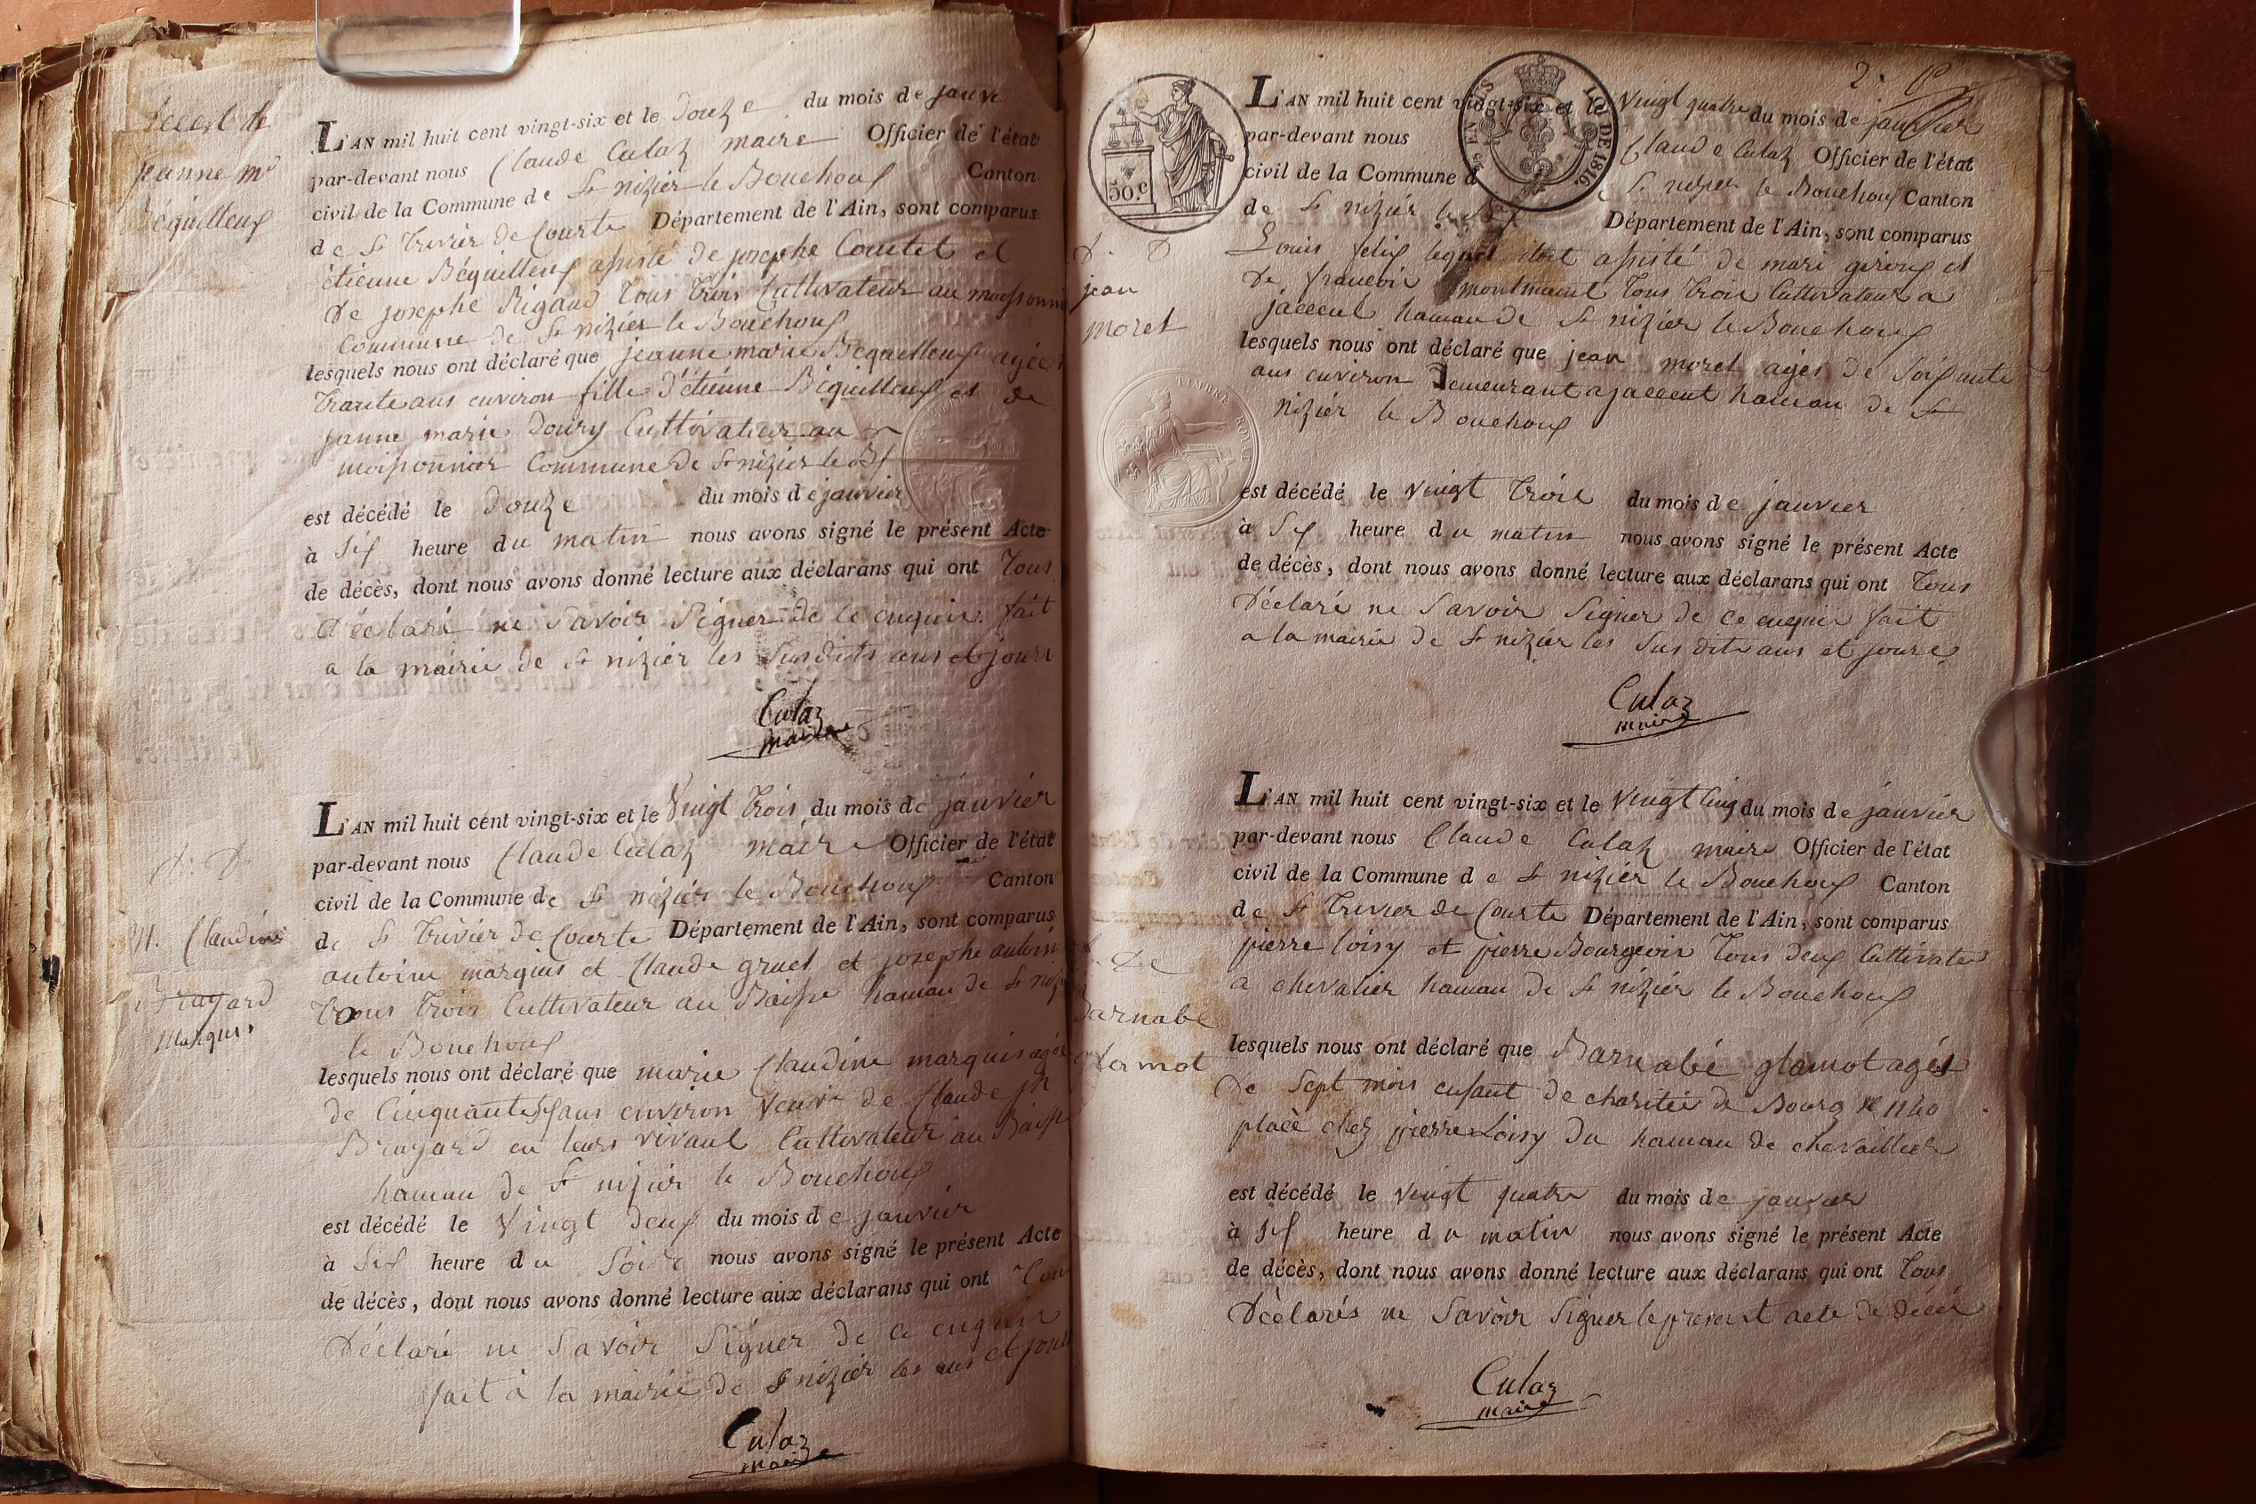 décest de
jeanne mie
Béquilleux
L'AN mil huit cent vingt-six et le douze du mois de janv
par-devant nous Claude Culaz maire Officier de l'état
civil de la Commune de St nizier le Bouchoux Canton
de St Trivier de Courte Département de l'Ain, sont comparus
étienne Béquilleux assisté de josephe Coutet et
de josephe Rigaud tous trois Cultivateur au
Commune de St nizier le Bouchoux
lesquels nous ont déclaré que jeanne marie Bequilleux agée
trante ans environ fille d'étiénne Béquilleux et de
janne marie doury Cultivateur au
moissonnier Commune de St nizier le Bx
est décédé le douze du mois de janvier
à Six heure du matin nous avons signé le présent Acte
de décès, dont nous avons donné lecture aux déclarans qui ont tous
déclaré ne Savoir Signer de ce enquie fait
a la mairie de St nizier les Susdits ans et jours
Culaz
maire
d. D
M. Claudine
Brayard
Marquis
L'AN mil huit cent vingt-six et le Vingt trois du mois de janvier
par-devant nous Claude Culaz maire Officier de l'état
civil de la Commune de St nizier le Bouchoux Canton
de St Trivier de Courte Département de l'Ain, sont comparus
antoine marquis et Claude gruet et josephe
tous trois Cultivateur au Baisse hamau de St
le Bouchoux
lesquels nous ont déclaré que marie Claudine marquis agée
de Cinquante Six ans environ Veuve de Claude
Brayard en leurs vivant Cultivateur au Baisse
hamau de St nizier le Bouchoux
est décédé le Vingt deux du mois de janvier
à Six heure du Soire nous avons signé le présent Acte
de décès, dont nous avons donné lecture aux déclarans qui ont
Déclaré ne Savoir Signer de ce enquie
fait à la mairie de St nizier les ans et jour
Culaz
maire
2.
50.c
TIMBRE ROYAL
LOI DE 1816.
d. D
jean
moret
L'AN mil huit cent vingt-six et le Vingt quatre du mois de janvier
par-devant nous Claude Culaz Officier de l'état
civil de la Commune de St nizier le Bouchoux Canton
de St nizier le Département de l'Ain, sont comparus
Louis felix lequel etoit assisté de mari giroux et
de francoi montmeiul tous trois Cultivateur a
jaccent hamau de St nizier le Bouchoux
lesquels nous ont déclaré que jean moret agés de Soixante
ans environ demeurant a jaccent hamau de St
nizier le Bouchoux
est décédé le vingt trois du mois de janvier
à Six heure du matin nous avons signé le présent Acte
de décès, dont nous avons donné lecture aux déclarans qui ont tous
Déclaré ne Savoir Signer de ce enquie fait
a la mairie de St nizier les Sus dits ans et jours
Culaz
maire
Barnabé
glamot
L'AN mil huit cent vingt-six et le vingt Cinq du mois de janvier
par-devant nous Claude Culaz maire Officier de l'état
civil de la Commune de St nizier le Bouchoux Canton
de St Trivier de Courte Département de l'Ain, sont comparus
pierre loisy et pierre Bourgeois tous deux Cultivate
a chevalier hamau de St nizier le Bouchoux
lesquels nous ont déclaré que Barnabé glamot agés
de Sept mois enfant de charitée de Bourg No 1140
placé chez pierre Loisy du hamau de chevaillier
est décédé le vingt quatre du mois de janvier
à Six heure du matin nous avons signé le présent Acte
de décès, dont nous avons donné lecture aux déclarans qui ont tous
Déclarés ne Savoir Signer le présent acte de décés
Culaz
maire